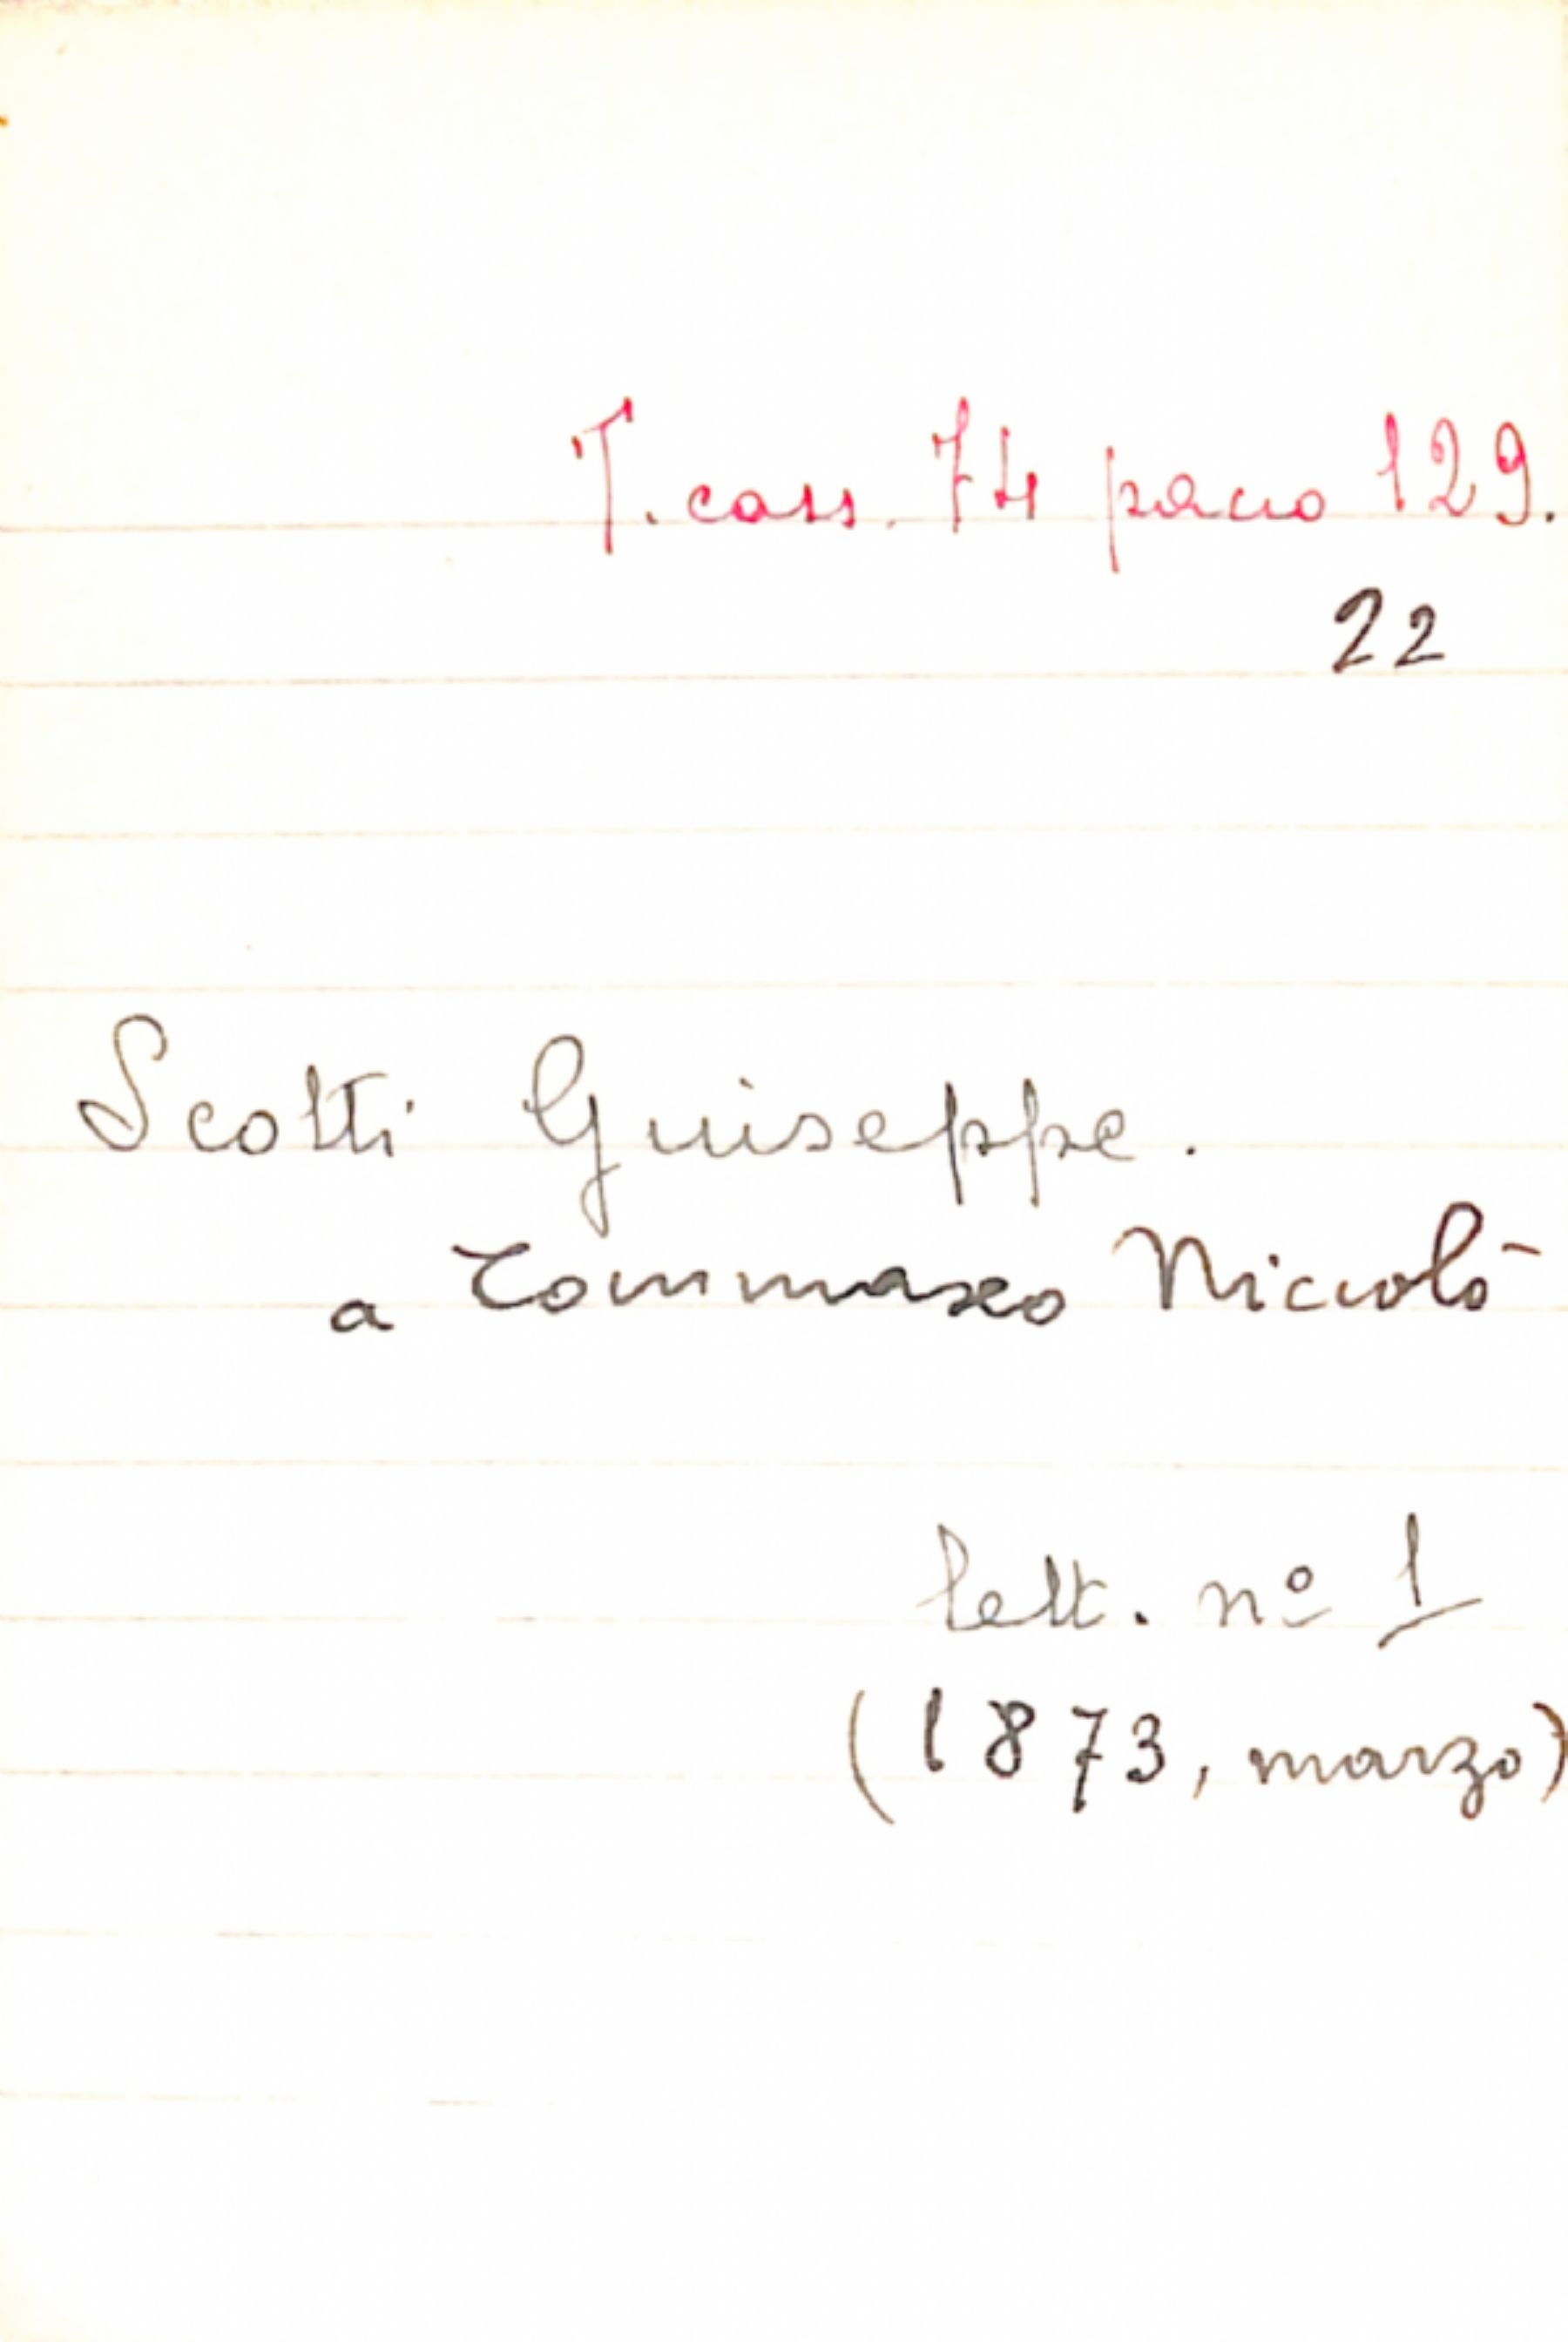 T. cass. 74 pacco 129.
22
Scotti Giuseppe.
a Tommaseo Niccolò
lett. nº 1
(1873, marzo)